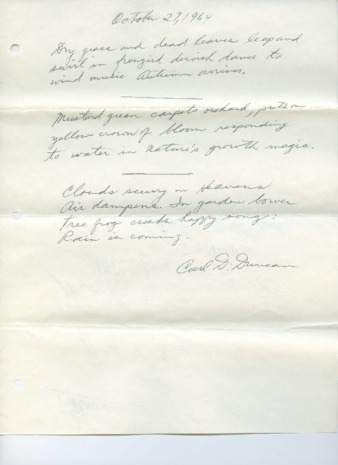 October 27, 1964
Dry grass and dead leaves leap and
swirl in frenzied dervish dance to
wind music Autumn arrives.
Mustard green carpets orchard, puts on
yellow crown of bloom responding
to water in nature's growth magic.
Clouds scurry in heavens
Air dampens. In garden bower
Tree frog croaks happy song:
Rain is coming.
Carl D. Duncan